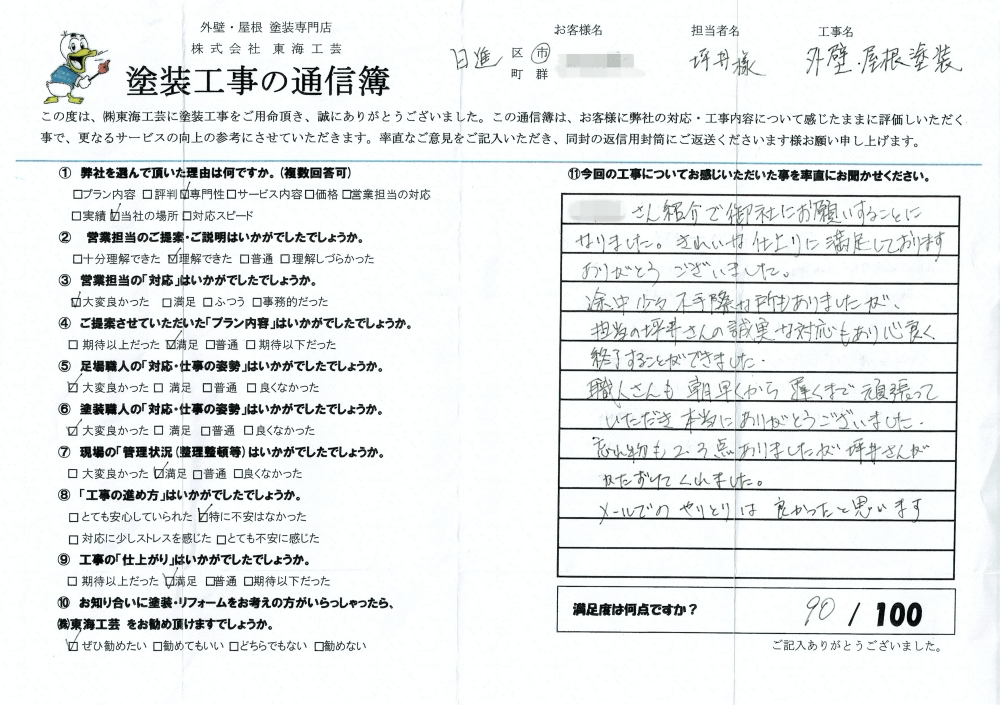 外壁・屋根 塗装専門店
株式会社 東海工芸
塗装工事の通信簿
お客様名
担当者名
工事名
日進 区 市
町 群
坪井様
外壁・屋根塗装
この度は、㈱東海工芸に塗装工事をご用命頂き、誠にありがとうございました。この通信簿は、お客様に弊社の対応・工事内容について感じたままに評価しいただく
事で、更なるサービスの向上の参考にさせていただきます。率直なご意見をご記入いただき、同封の返信用封筒にご返送くださいます様お願い申し上げます。
① 弊社を選んで頂いた理由は何ですか。(複数回答可)
□プラン内容 □評判 ☑専門性 □サービス内容 □価格 □営業担当の対応
□実績 ☑当社の場所 □対応スピード
② 営業担当のご提案・ご説明はいかがでしたでしょうか。
□十分理解できた ☑理解できた □普通 □理解しづらかった
③ 営業担当の「対応」はいかがでしたでしょうか。
☑大変良かった □満足 □ふつう □事務的だった
④ ご提案させていただいた「プラン内容」はいかがでしたでしょうか。
□期待以上だった ☑満足 □普通 □期待以下だった
⑤ 足場職人の「対応・仕事の姿勢」はいかがでしたでしょうか。
☑大変良かった □満足 □普通 □良くなかった
⑥ 塗装職人の「対応・仕事の姿勢」はいかがでしたでしょうか。
☑大変良かった □満足 □普通 □良くなかった
⑦ 現場の「管理状況(整理整頓等)はいかがでしたでしょうか。
□大変良かった ☑満足 □普通 □良くなかった
⑧ 「工事の進め方」はいかがでしたでしょうか。
□とても安心していられた ☑特に不安はなかった
□対応に少しストレスを感じた □とても不安に感じた
⑨ 工事の「仕上がり」はいかがでしたでしょうか。
□期待以上だった ☑満足 □普通 □期待以下だった
⑩ お知り合いに塗装・リフォームをお考えの方がいらっしゃったら、
㈱東海工芸 をお勧め頂けますでしょうか。
☑ぜひ勧めたい □勧めてもいい □どちらでもない □勧めない
⑪今回の工事についてお感じいただいた事を率直にお聞かせください。
さん紹介で御社にお願いすることに
なりました。きれいな仕上りに満足しております
ありがとうございました。
途中少々不手際な所もありましたが、
担当の坪井さんの誠実な対応もあり心良く
終了することができました.
職人さんも朝早くから遅くまで頑張って
いただき本当にありがとうございました.
忘れ物も2.3点ありましたが坪井さんが
かたずけてくれました。
メールでのやりとりは良かったと思います
満足度は何点ですか? 90 / 100
ご記入ありがとうございました。